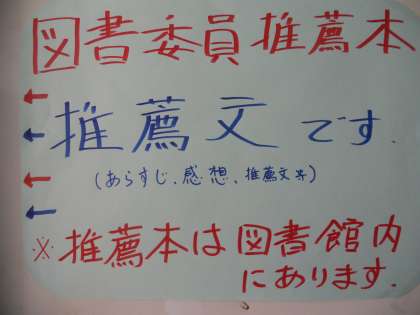 図書委員推薦本
推薦文です.
(あらすじ、感想、推薦文等)
※推薦本は図書館内
にあります.